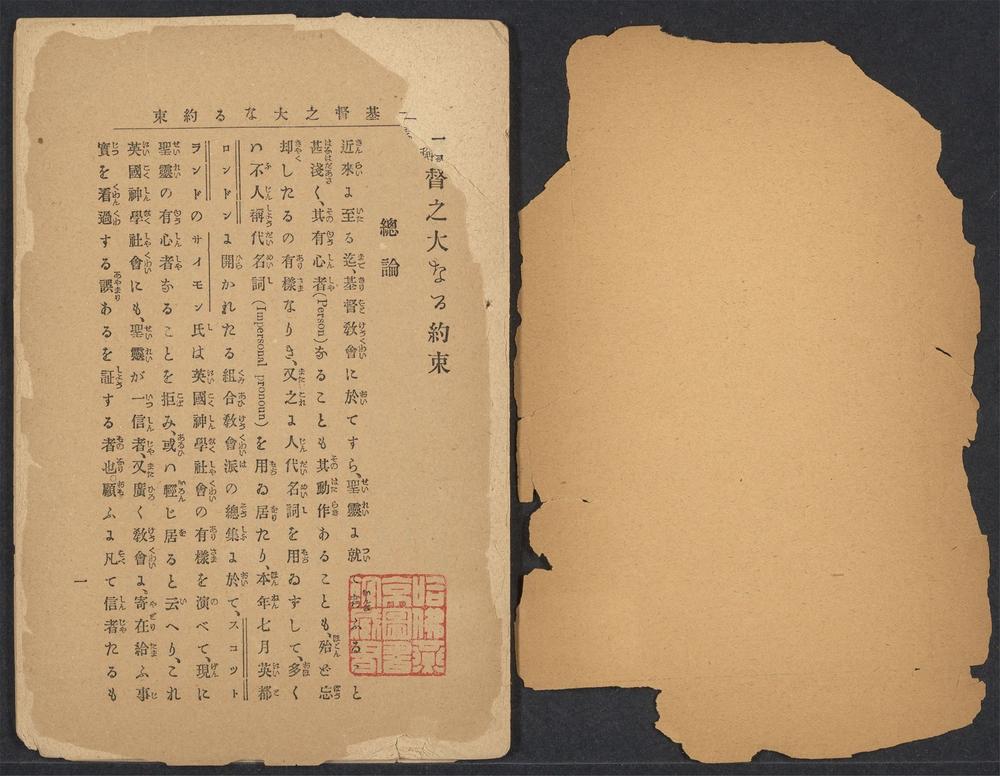 基督之大なる約束
督之大なる約束
總論
近來に至る迄、基督敎會に於てすら、聖靈に就
甚淺く、其有心者(Person)なることも其動作あることも、殆ど忘
却したるの有樣なりき、又之に人代名詞を用ゐずして、多く
ハ不人稱代名詞(Impersonal pronoun)を用ゐ居たり、本年七月英都
ロンドンに開かれたる組合敎會派の總集に於て、スコット
ランドのサイモン氏は英國神學社會の有樣を演べて、現に
聖靈の有心者なることを拒み、或ハ輕じ居ると云へり、これ
英國神學社會にも、聖靈が一信者、又廣く敎會に、寄在給ふ事
實を看過する誤あるを証する者也顧ふに凡て信者たるも
一
哈佛燕
京圖書